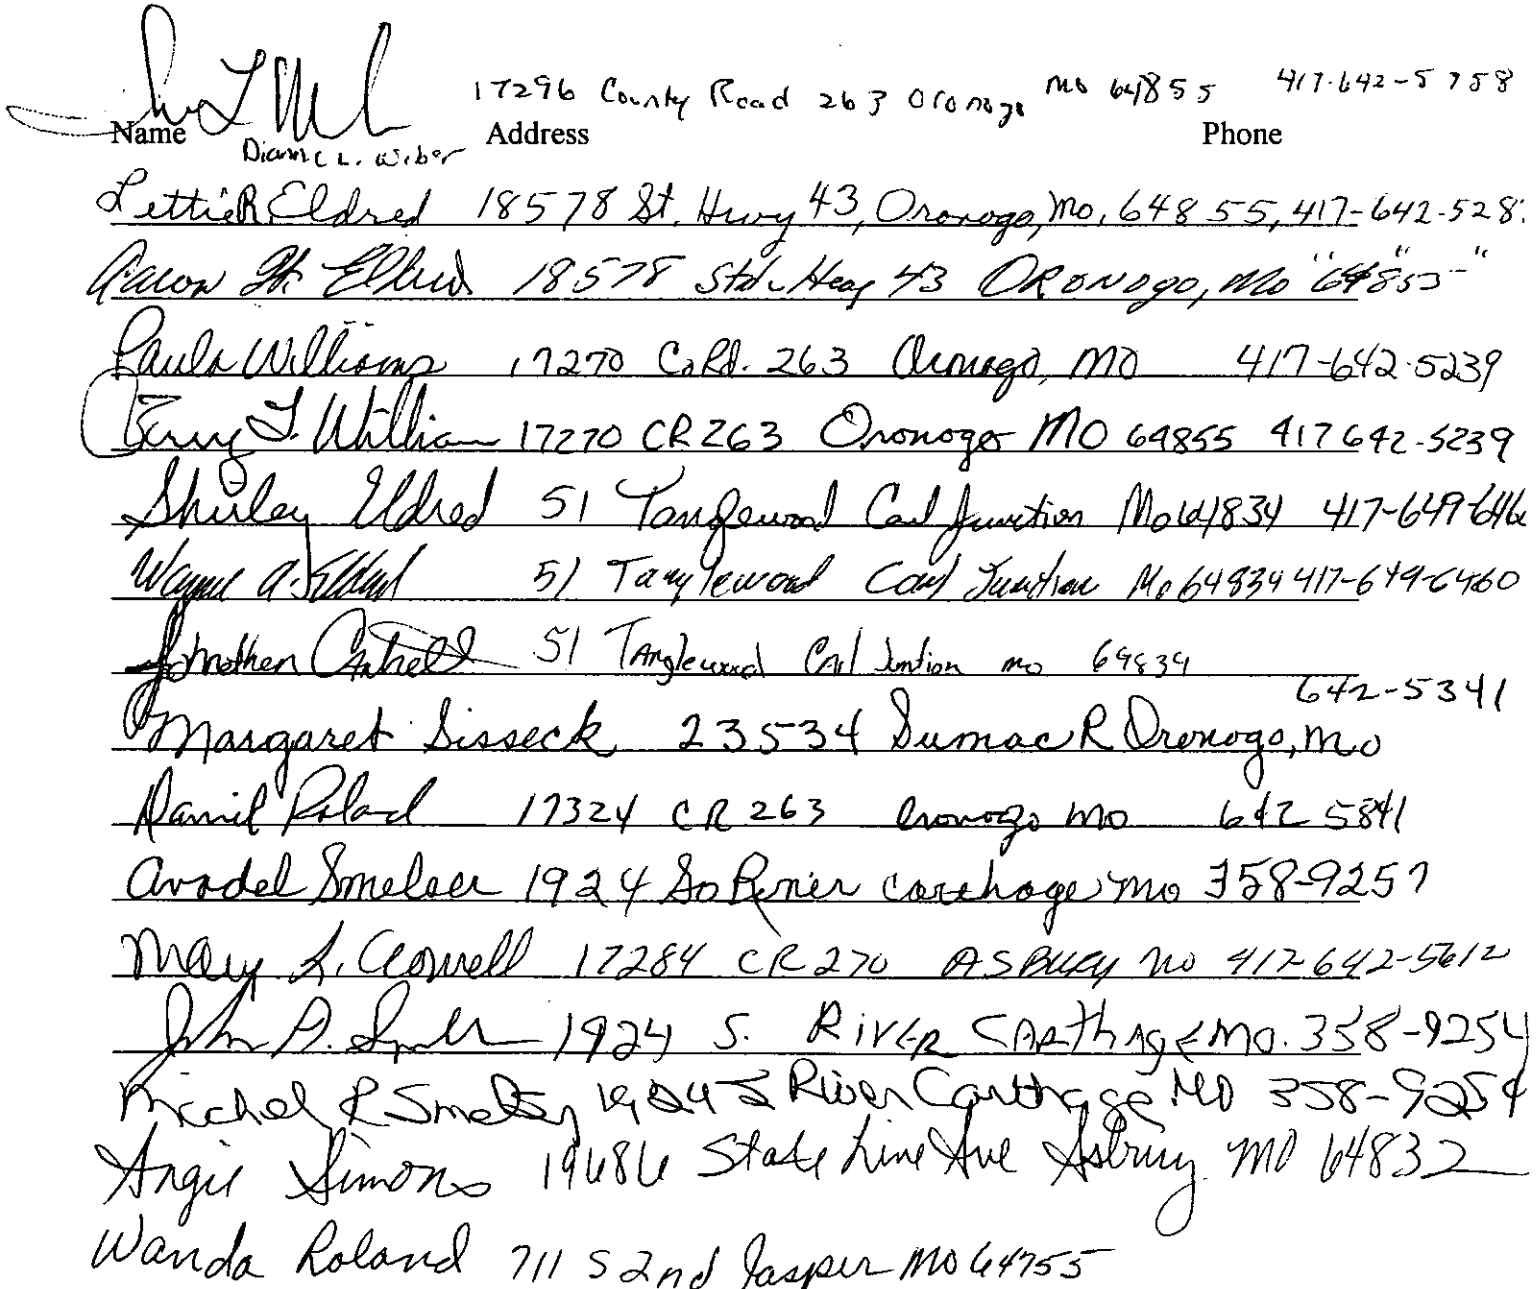 17296 County Road 263 Oronogo Mo 64855 417-642-5758
Name Address Phone
Dianne L. Wiber
Lettie R. Eldred 18578 St. Hwy 43, Oronogo, Mo, 64855, 417-642-528
Aaron 18578 State Hwy 43 ORONOgo, Mo 64855 " " "
Paula Williams 17270 Co Rd. 263 Oronogo, MO 417-642-5239
Terry J. William 17270 CR 263 Oronogo MO 64855 417 642-5239
Shirley Eldred 51 Tanglewood Carl Junction Mo 64834 417-649-646
Wayne A. Eldred 51 Tanglewood Carl Junction Mo 64834 417-649-6460
Jonathen Cantrell 51 Tanglewood Carl Juntion mo 64834
642-5341
Margaret Sisseck 23534 Sumac R Oronogo, Mo
Daniel Roland 17324 CR 263 Oronogo Mo 642 5841
Avadel Smelser 1924 So River Carthage Mo 358-9257
Mary L. 17284 CR 270 ASBURY MO 417-642-5612
John 1924 S. RIVER CARThAgE MO. 358-9254
Michel R Smelser 1924 S River Carthage MO 358-9254
Angie Simons 19686 State Line Ave Asbury MO 64832
Wanda Roland 711 S 2nd Jasper MO 64755